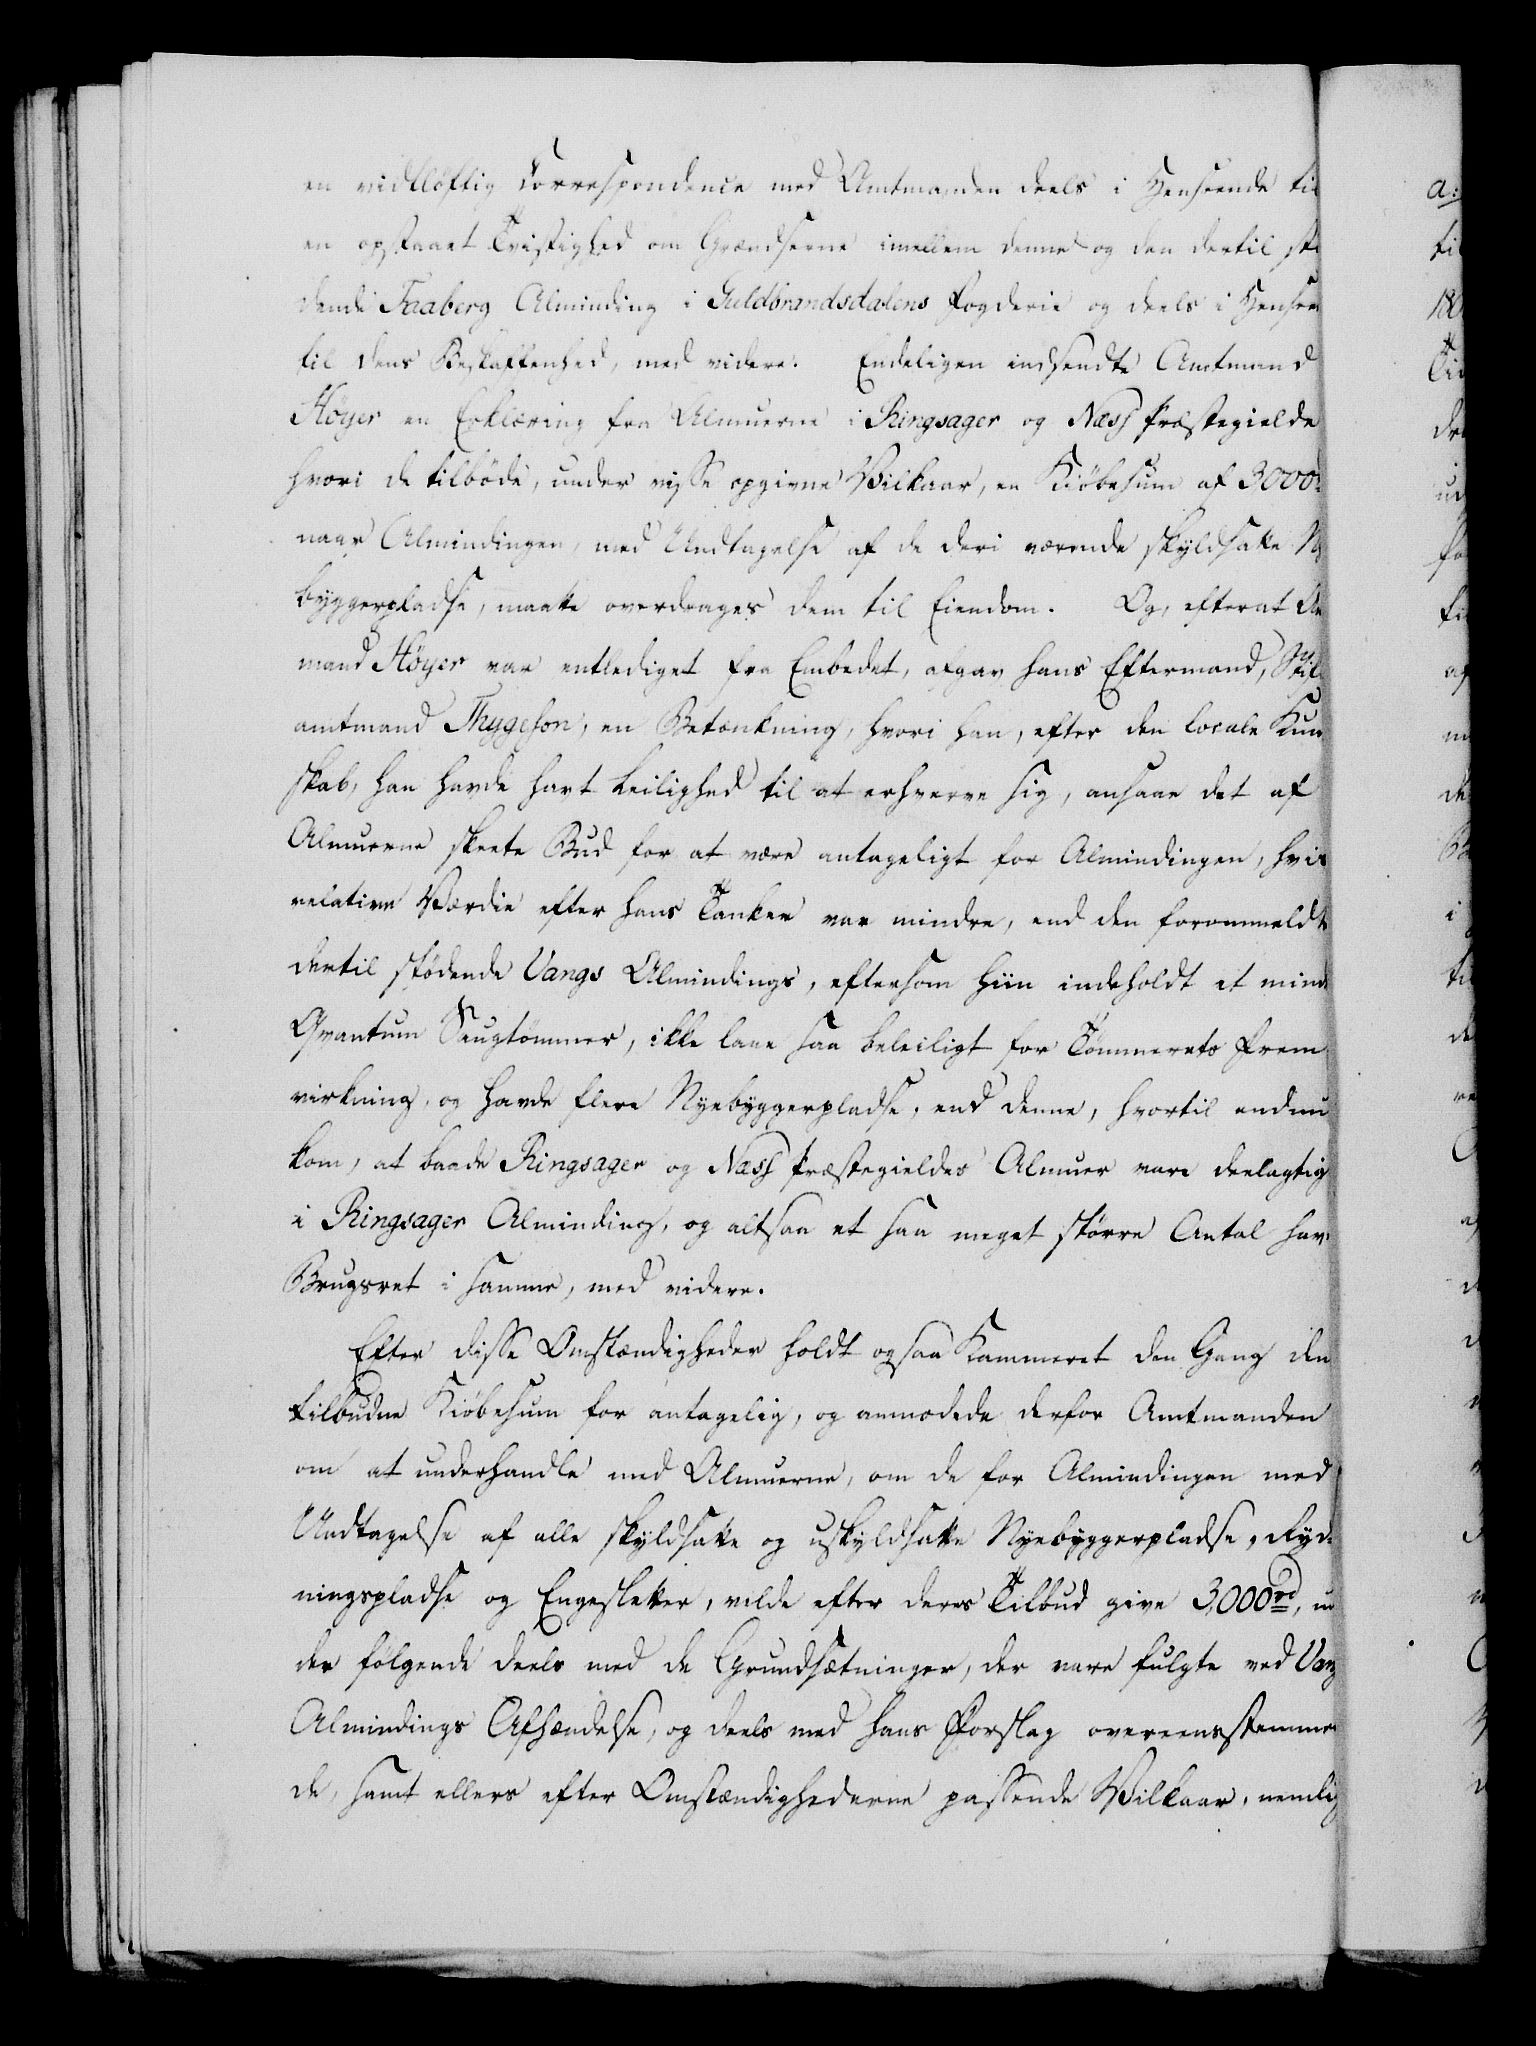 en vidtløftig Correspondence med Amtmanden deels i Henseende til
en opstaaet Tvistighed om Grændserne imellem denne og den dertil stø
dende Faaberg Alminding i Guldbrandsdalens Fogderie og deels i Hensee
til dens Beskaffenhed, med videre. Endeligen indsendte Amtmand
Høyer en Erklæring fra Almuerne i Ringsager og Næss Præstegielde
hvori de tilbøde, under visse opgivne Vilkaar, en Kiöbesum af 3000
naar Almindingen, med Undtagelse af de deri værende skyldsatte Ny
byggerpladse, maatte overdrages dem til Eiendom. Og, efterat Am
mand Høyer var entlediget fra Embedet, afgav hans Eftermand, Stift
amtmand Thygeson, en Betænkning, hvori han, efter den locale Kund
skab, han havde havt Leilighed til at erhverve sig, ansaae det af
Almuerne skeete Bud for at være antageligt for Almindingen, hvis
relative Værdie efter hans Tanker var mindre, end den forommeldte
dertil stødende Vangs Almindings, eftersom hiin indeholdt et mind
Qvantum Saugtømmer, ikke laae saa beleiligt for Tømmerets Frem
virkning, og havde flere Nyebyggerpladse, end denne, hvortil endnu
kom, at baade Ringsager og Næss Præstegieldes Almuer vare deelagtig
i Ringsager Alminding, og altsaa et saa meget større Antal hav
Brugsret i samme, med videre.
Efter disse Omstændigheder holdt ogsaa Kammeret den Gang den
tilbudne Kiöbesum for antagelig, og anmodede derfor Amtmanden
om at underhandle med Almuerne, om de for Almindingen med
Undtagelse af alle skyldsatte og uskyldsatte Nyebyggerpladse, Ryd
ningspladse og Engesletter, vilde efter deres Tilbud give 3,000rd, un
der følgende deels med de Grundsætninger, der vare fulgte ved Vang
Almindings Afhændelse, og deels med hans Forslag overeensstemmen
de, samt ellers efter Omstændighederne passende Vilkaar, nemlig